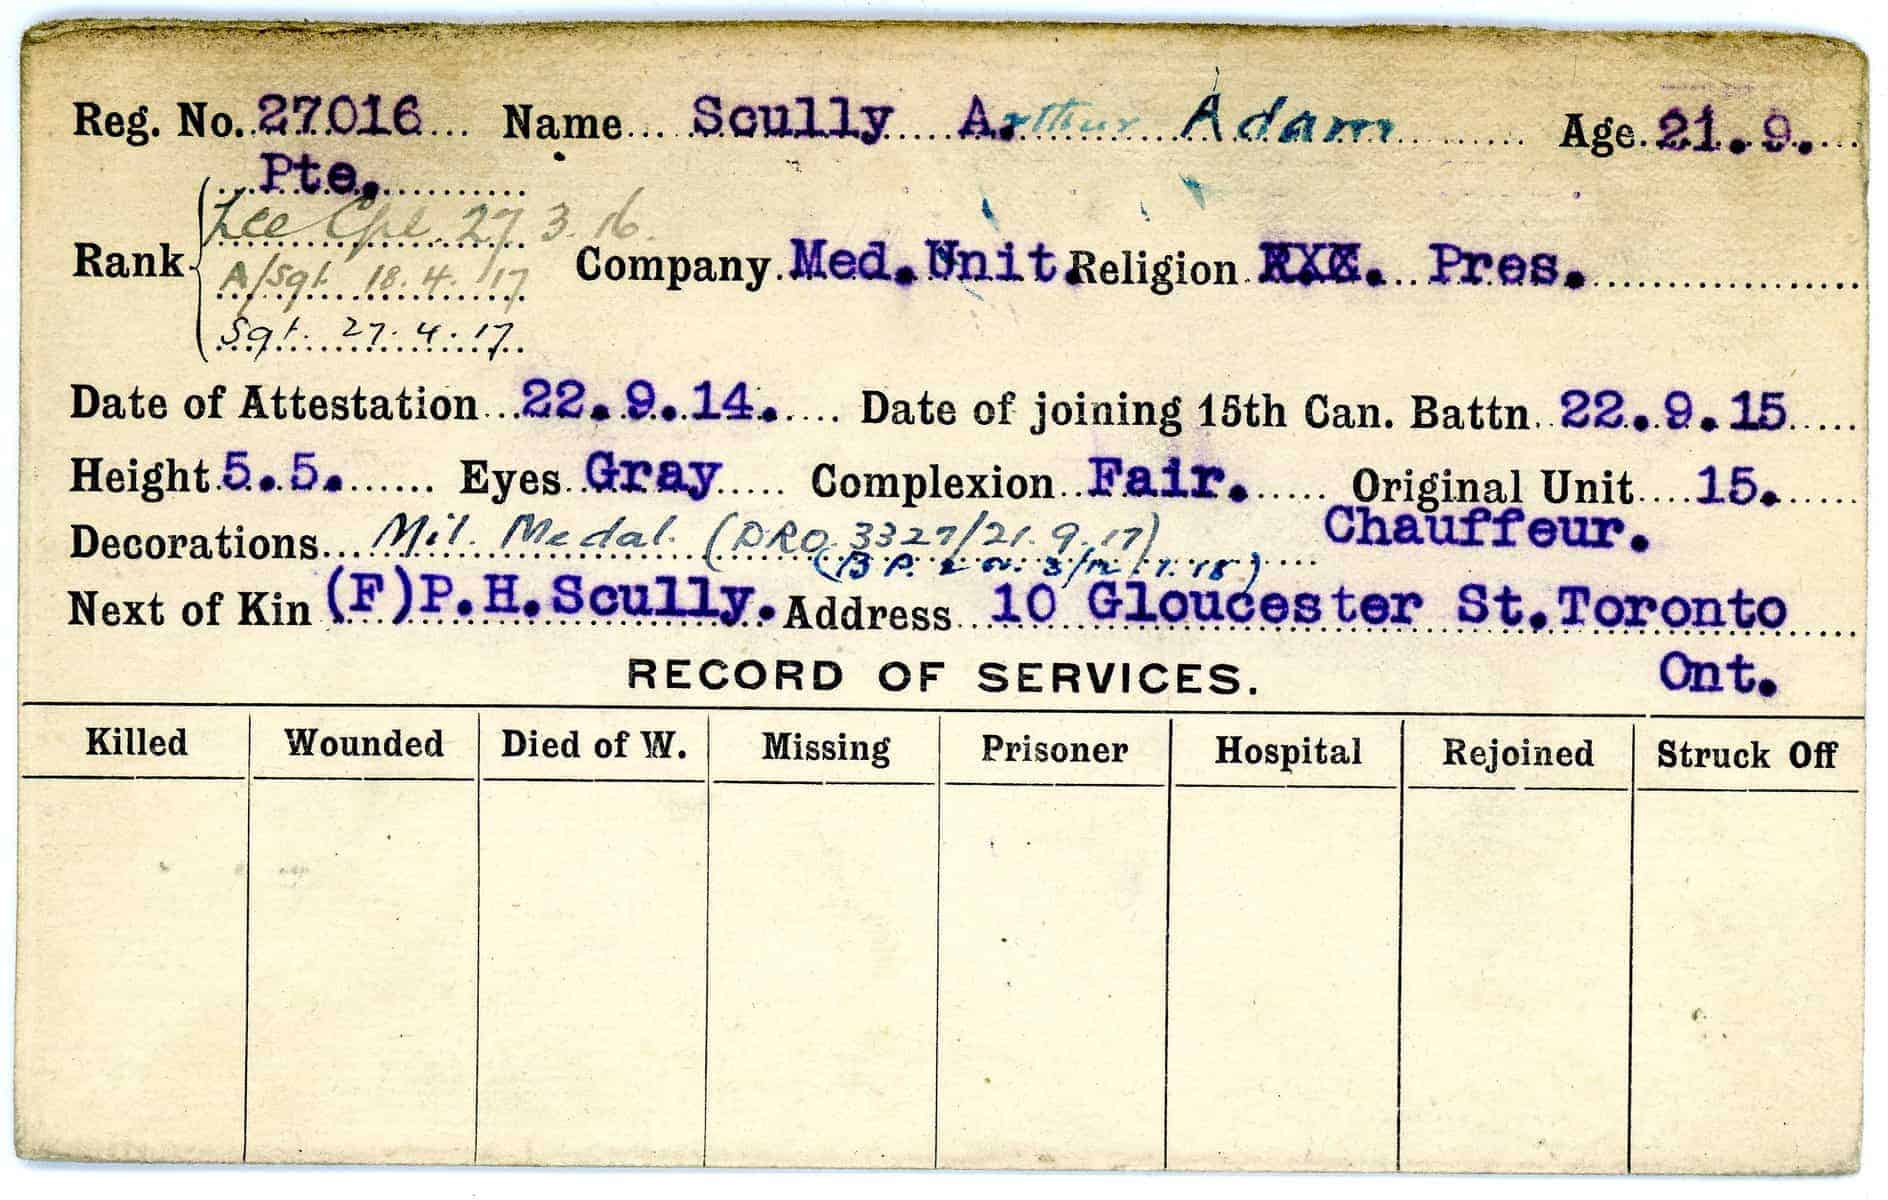 Reg. No. 27016 Name Scully Arthur Adam Age 21.9.
Pte.
Lce Cpl. 27 3.16.
Rank A/Sgt 18.4.17 Company Med. Unit Religion Pres.
Sgt. 27.4.17
Date of Attestation 22.9.14. Date of joining 15th Can. Battn. 22.9.15
Height 5.5. Eyes Gray Complexion Fair. Original Unit 15.
Decorations Mil. Medal (DRO 3327/21.9.17) Chauffeur.
Next of Kin (F)P.H.Scully. Address 10 Gloucester St. Toronto
RECORD OF SERVICES. Ont.
Killed Wounded Died of W. Missing Prisoner Hospital Rejoined Struck Off